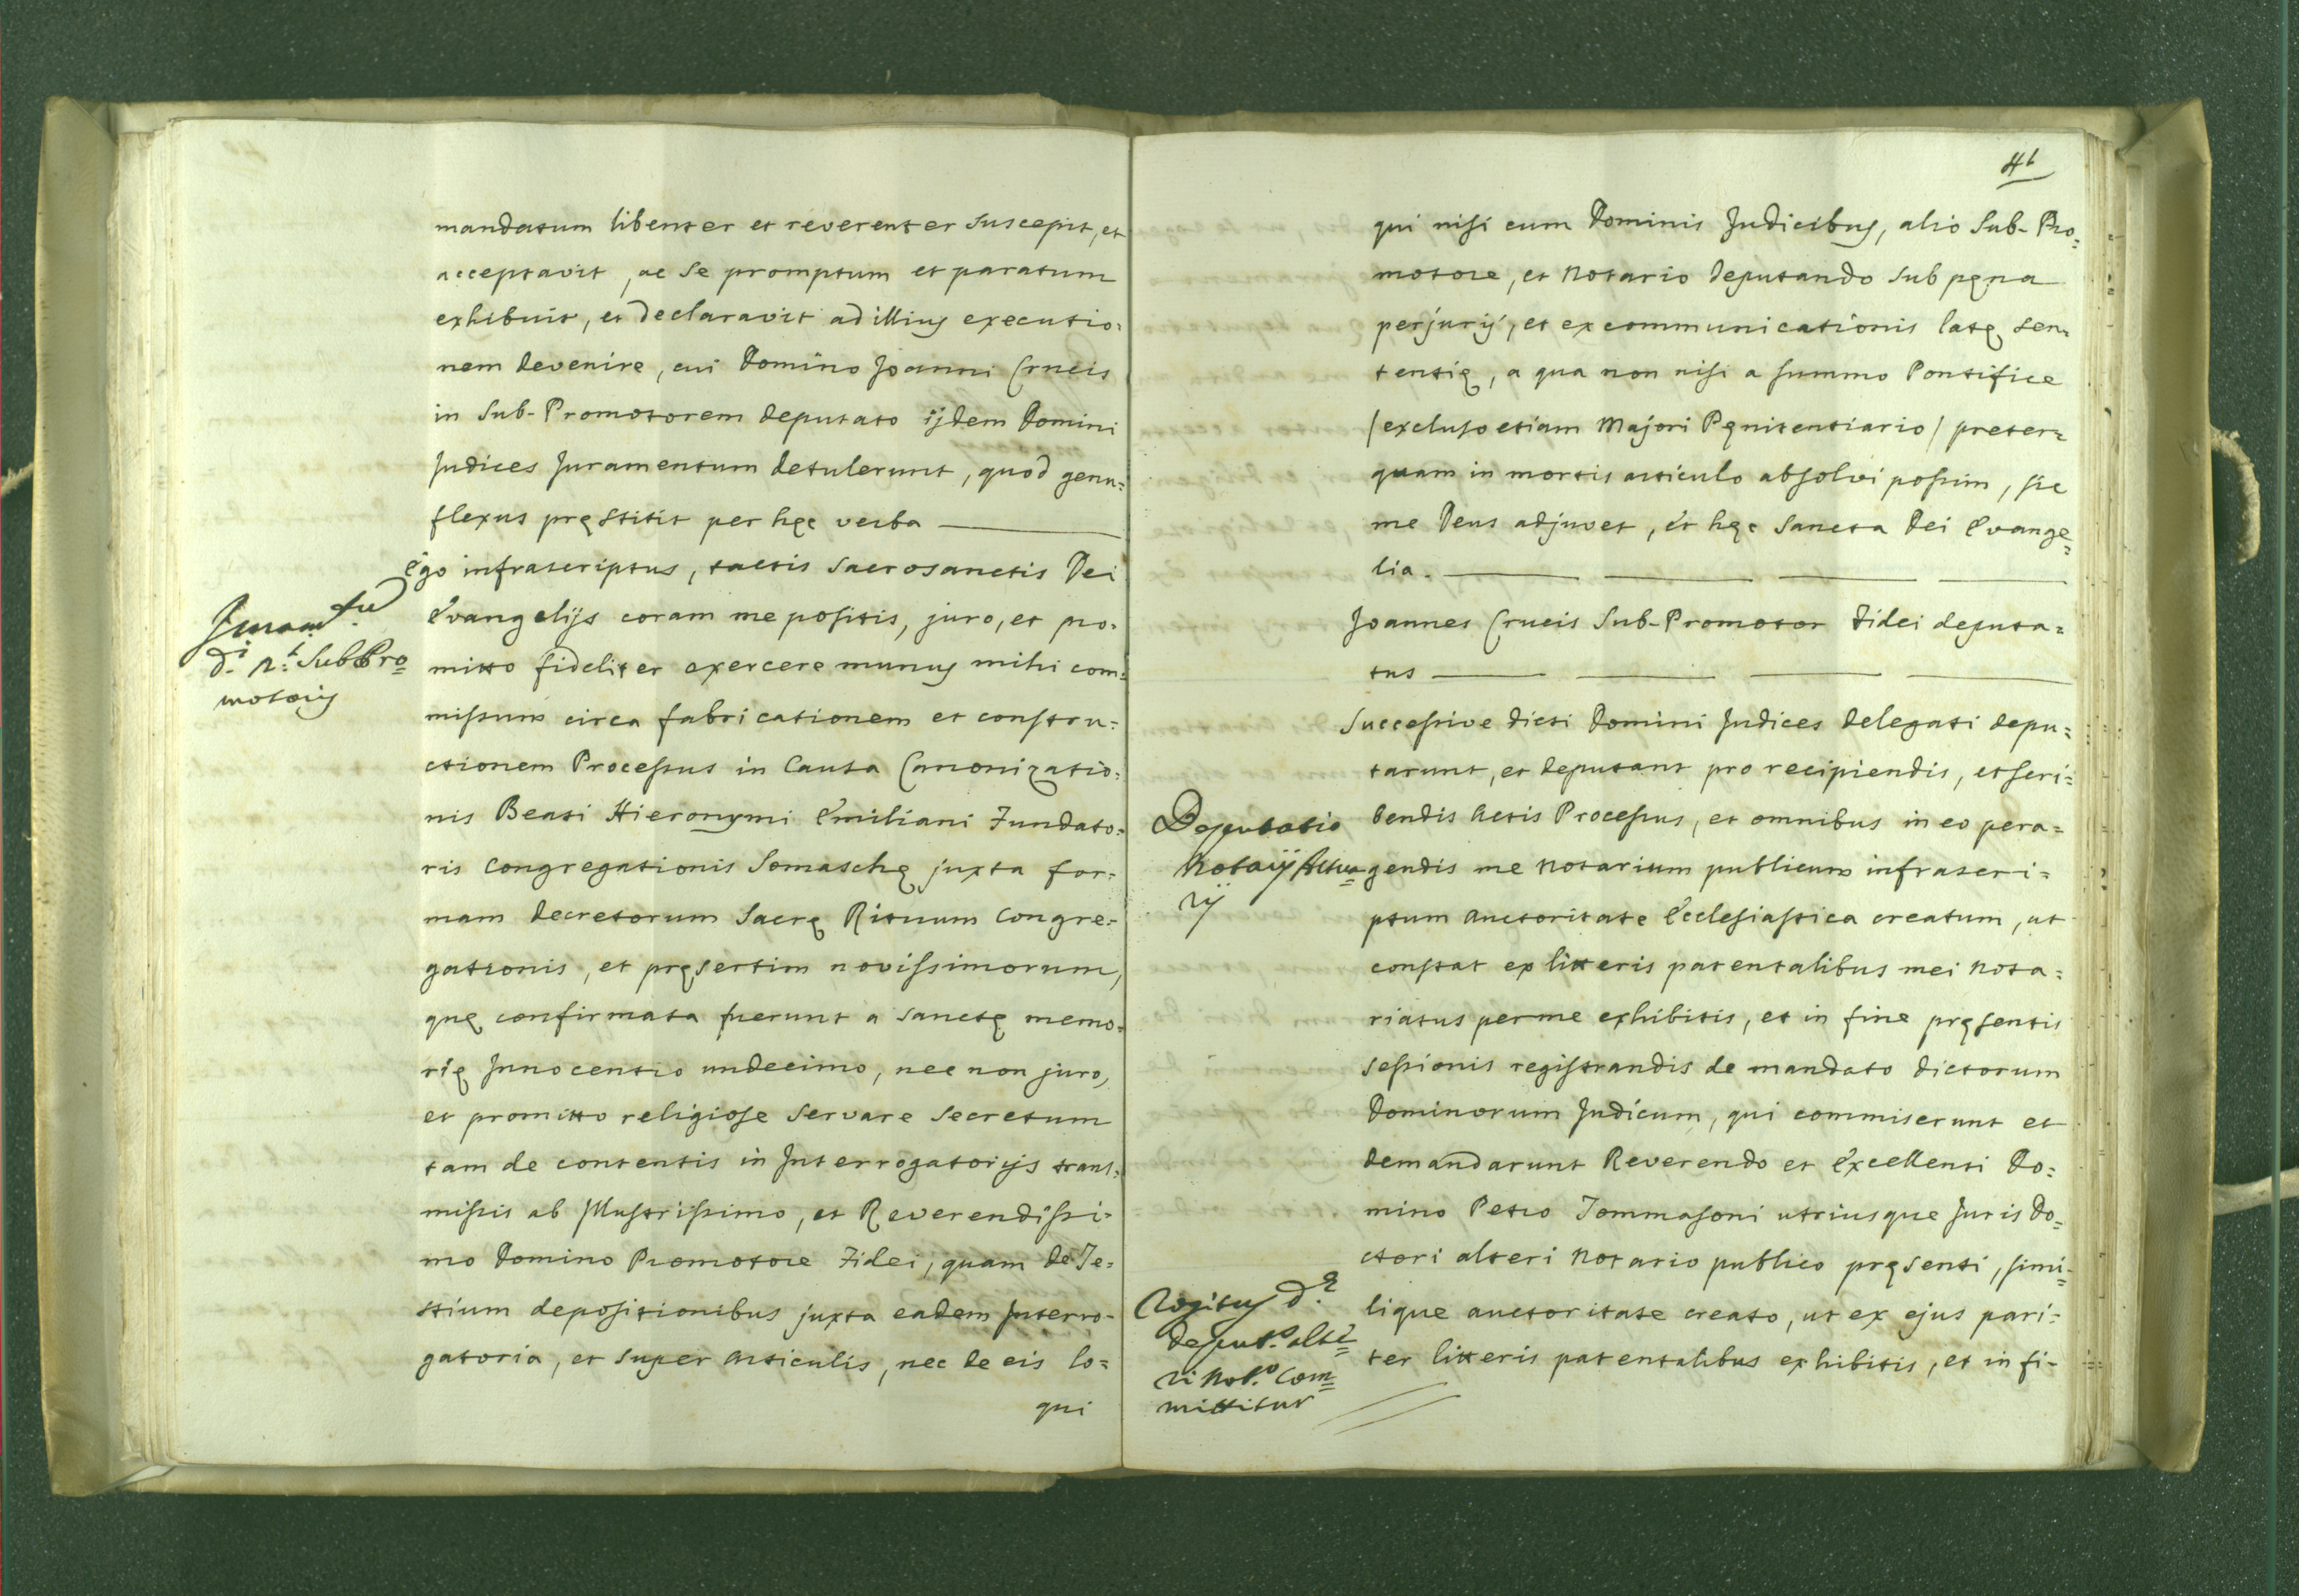 mandatum libenter et reverenter suscepit, et
acceptavit, ac se promptum et paratum
exhibuit, et declaravit ad illius executio=
nem devenire, cui Domino Joanni Crucis
in Sub-Promotorem deputato ijdem Domini
Judices Juramentum detulerunt, quod genu=
flexus pręstitit per hęc verba
Ego infrascriptus, tactis Sacrosanctis Dei
Evangelijs coram me positis, juro, et pro=
Juram.tu
mitto fideliter exercere munus mihi com=
d.i n.t SubPro=
motoris
missum circa fabricationem et constru=
ctionem Processus in Causa Canonizatio=
nis Beati Hieronymi Emiliani Fundato=
ris Congregationis Somaschę juxta for=
mam decretorum Sacrę Rituum Congre=
gationis, et pręsertim novissimorum,
quę confirmata fuerunt a sanctę memo=
rię Innocentio undecimo, nec non juro,
et promitto religiose servare secretum
tam de contentis in Interrogatorijs trans=
missis ab Illustrissimo, et Reverendissi=
mo Domino Promotore Fidei, quam de Te=
stium depositionibus juxta eadem Interro=
gatoria, et super Articulis, nec de eis lo=
qui
41
qui nisi cum Dominis Judicibus, alio Sub-Pro=
motore, et Notario deputando sub pęna
perjurij, et excommunicationis latę sen=
tentię, a qua non nisi a summo Pontifice
/excluso etiam Majori Pęnitentiario/ preter=
quam in mortis articulo absolvi possim, sic
me Deus adjuvet, et hęc Sancta Dei Evange=
lia.
Joannes Crucis Sub-Promotor Fidei deputa=
tus
Successive dicti Domini Judices delegati depu=
tarunt, et deputant pro recipiendis, et scri=
Deputatio
Notarij Actua=
rij
bendis Actis Processus, et omnibus in eo pera=
gendis me Notarium publicum infrascri=
ptum auctoritate Ecclesiastica creatum, ut
constat ex litteris patentalibus mei Nota=
riatus per me exhibitis, et in fine pręsentis
sessionis registrandis de mandato dictorum
Dominorum Judicum, qui commiserunt et
demandarunt Reverendo et Excellenti Do=
mino Petro Tommasoni utriusque Juris Do=
ctori alteri Notario publico pręsenti, simi=
Rogitus d.
deput.o alte=
ri Not.o Com=
mittitur
lique auctoritate creato, ut ex ejus pari=
ter litteris patentalibus exhibitis, et in fi-